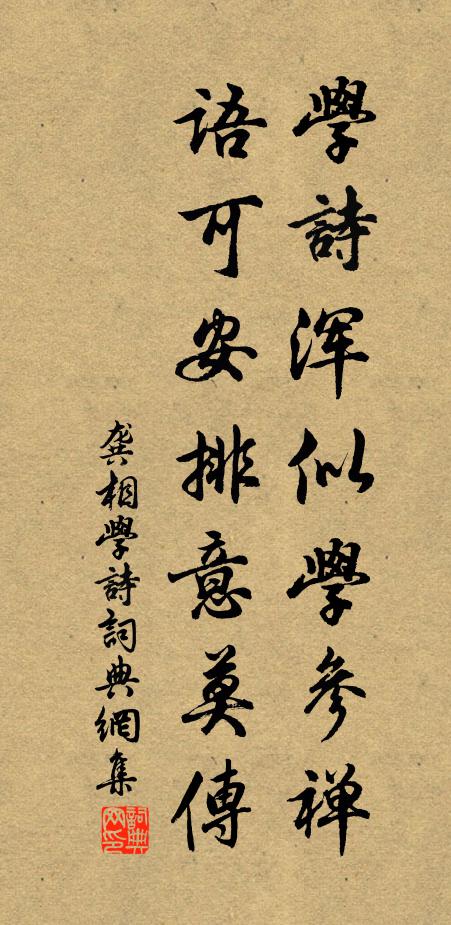 學詩浑似學參禅
語可安排意莫傳
龚相學詩詞典網集
詞典网印